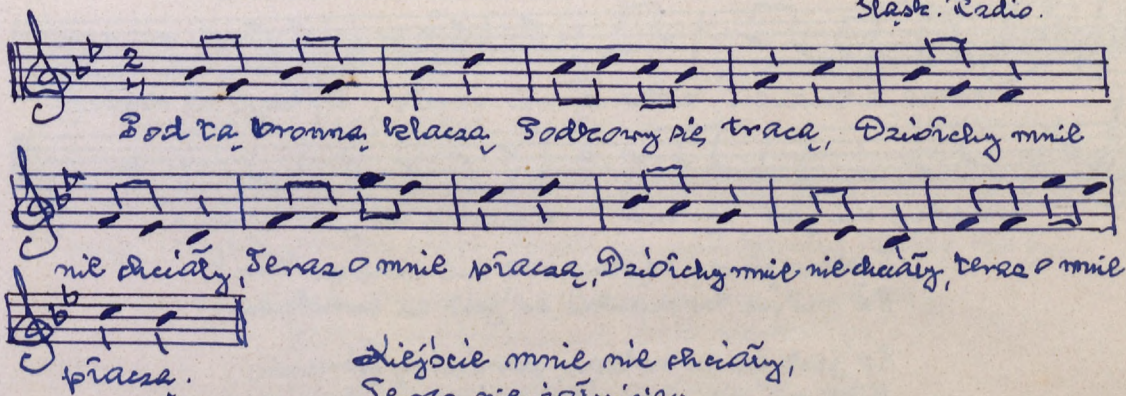 Śląsk. Radio.
2
4
Pod tą bronną klaczą Podkowy się tracą, Dziołchy mnie
nie chciały, Teraz o mnie płaczą, Dziołchy mnie nie chciały, teraz o mnie
płaczą.
mnie nie chciały,